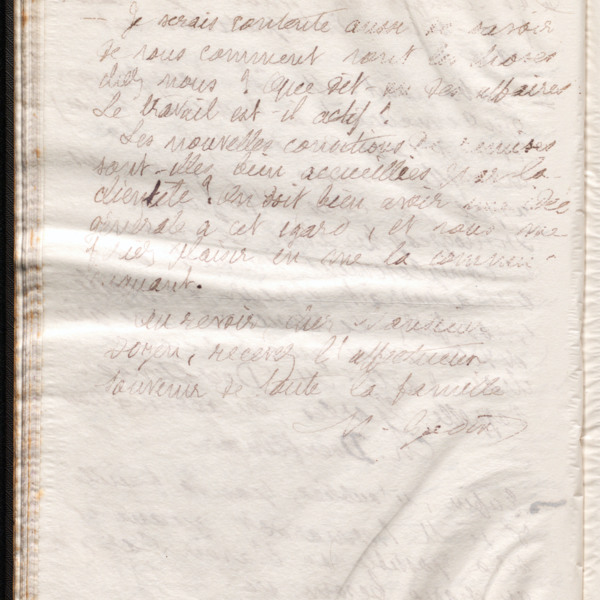 — Je serais contente aussi de savoir
de vous comment vont les choses
chez nous ? Que dit-on des affaires
Le travail est-il actif ?
Les nouvelles conditions de remises
sont-elles bien accueillies par la
clientèle ? On doit bien avoir une idée
générale à cet égard, et vous me
feriez plaisir en me la commu-
niquant.
Au revoir cher Monsieur
Doyen, recevez l'affectueux
souvenir de toute la famille